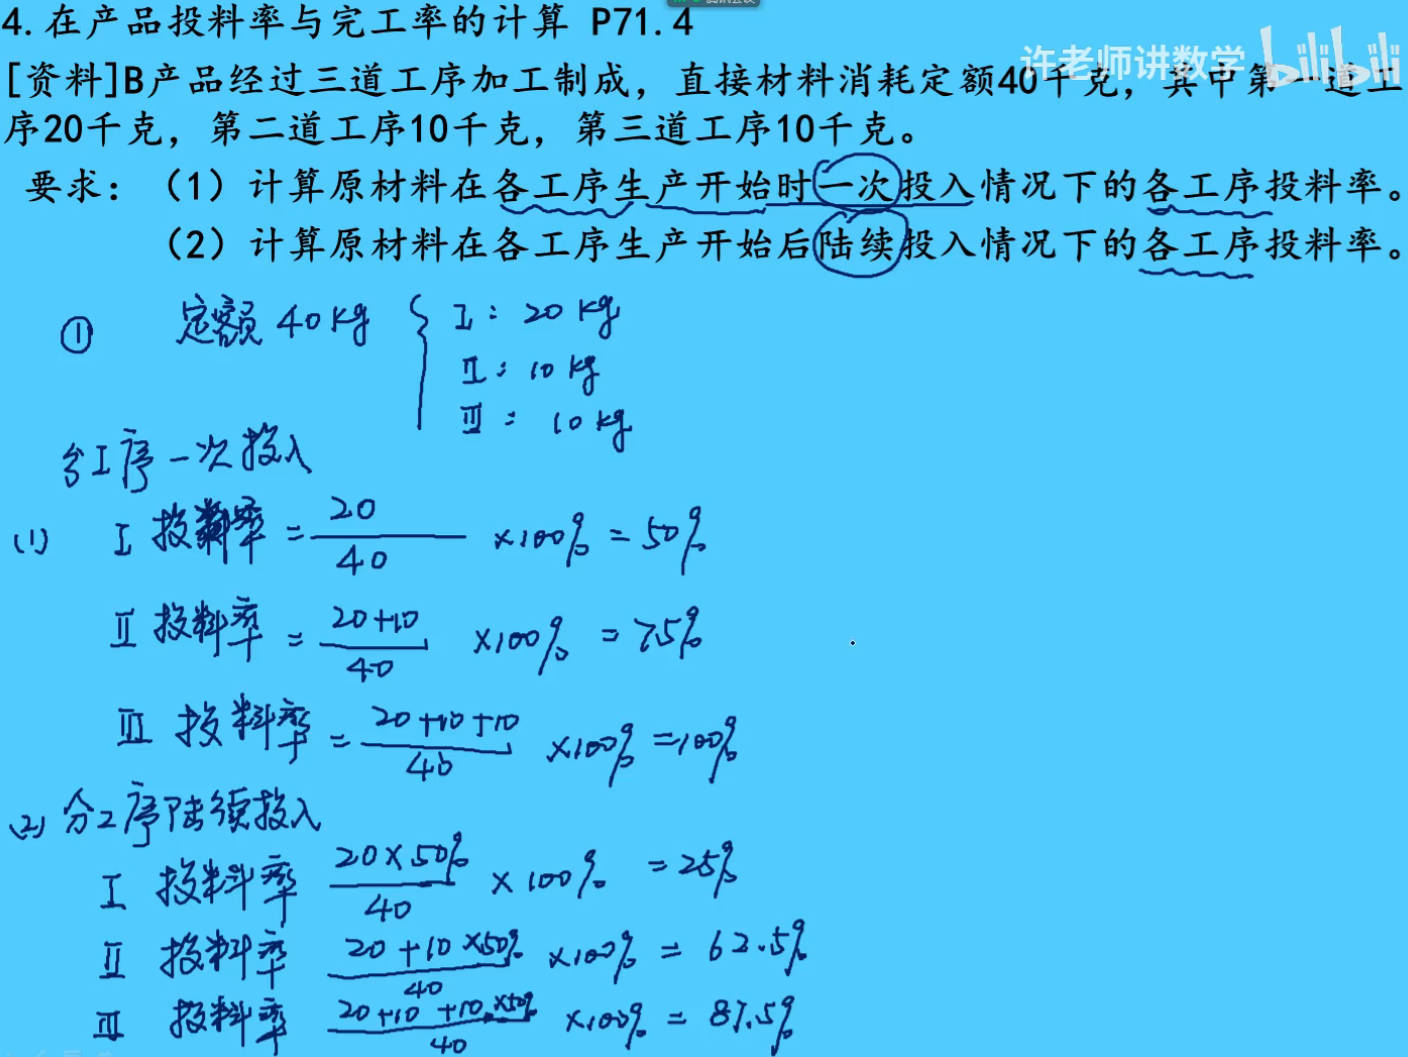 4.在产品投料率与完工率的计算 P71.4
许老师讲数学 bilibili
[资料]B产品经过三道工序加工制成，直接材料消耗定额40千克，其中第一道工
序20千克，第二道工序10千克，第三道工序10千克。
要求：（1）计算原材料在各工序生产开始时一次投入情况下的各工序投料率。
（2）计算原材料在各工序生产开始后陆续投入情况下的各工序投料率。
① 定额 40kg { I： 20 kg
II： 10 kg
III： 10 kg
分工序一次投入
(1) I 投料率 = 20/40 ×100% = 50%
II 投料率 = 20+10/40 ×100% = 75%
III 投料率 = 20+10+10/40 ×100% = 100%
(2) 分工序陆续投入
I 投料率 20×50%/40 ×100% = 25%
II 投料率 20+10×50%/40 ×100% = 62.5%
III 投料率 20+10+10×50%/40 ×100% = 87.5%